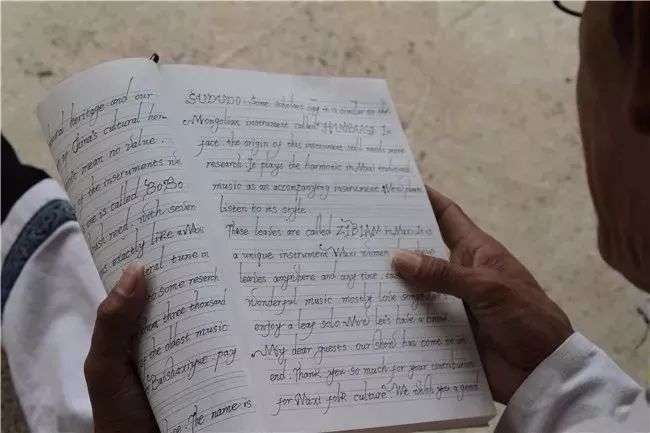 heritage and our
of China's cultural her-
mean no value.
of the instruments we
one is called "BoBo.
reed, with seven
exactly like a Naxi
tune in
to some research
than three thousand
of the oldest music
Baishaxiyue. pay
The name is
SUDUDO. Some scholars say it is similar to the
Mongolian instrument called In
fact the origin of this instrument still needs more
research. It plays the harmonic in Naxi traditional
music as an accompanying instrument. Now please
listen to its style.
These leaves are called ZIBIAN in Naxi. It is
a unique instrument. Naxi women
leaves anywhere and any time,
Wonderful music mostly love songs
enjoy a leaf solo. Now let's have a
My dear guests. our show has come to an
end. Thank you so much for your contribution
for Naxi folk culture. We wish you a good